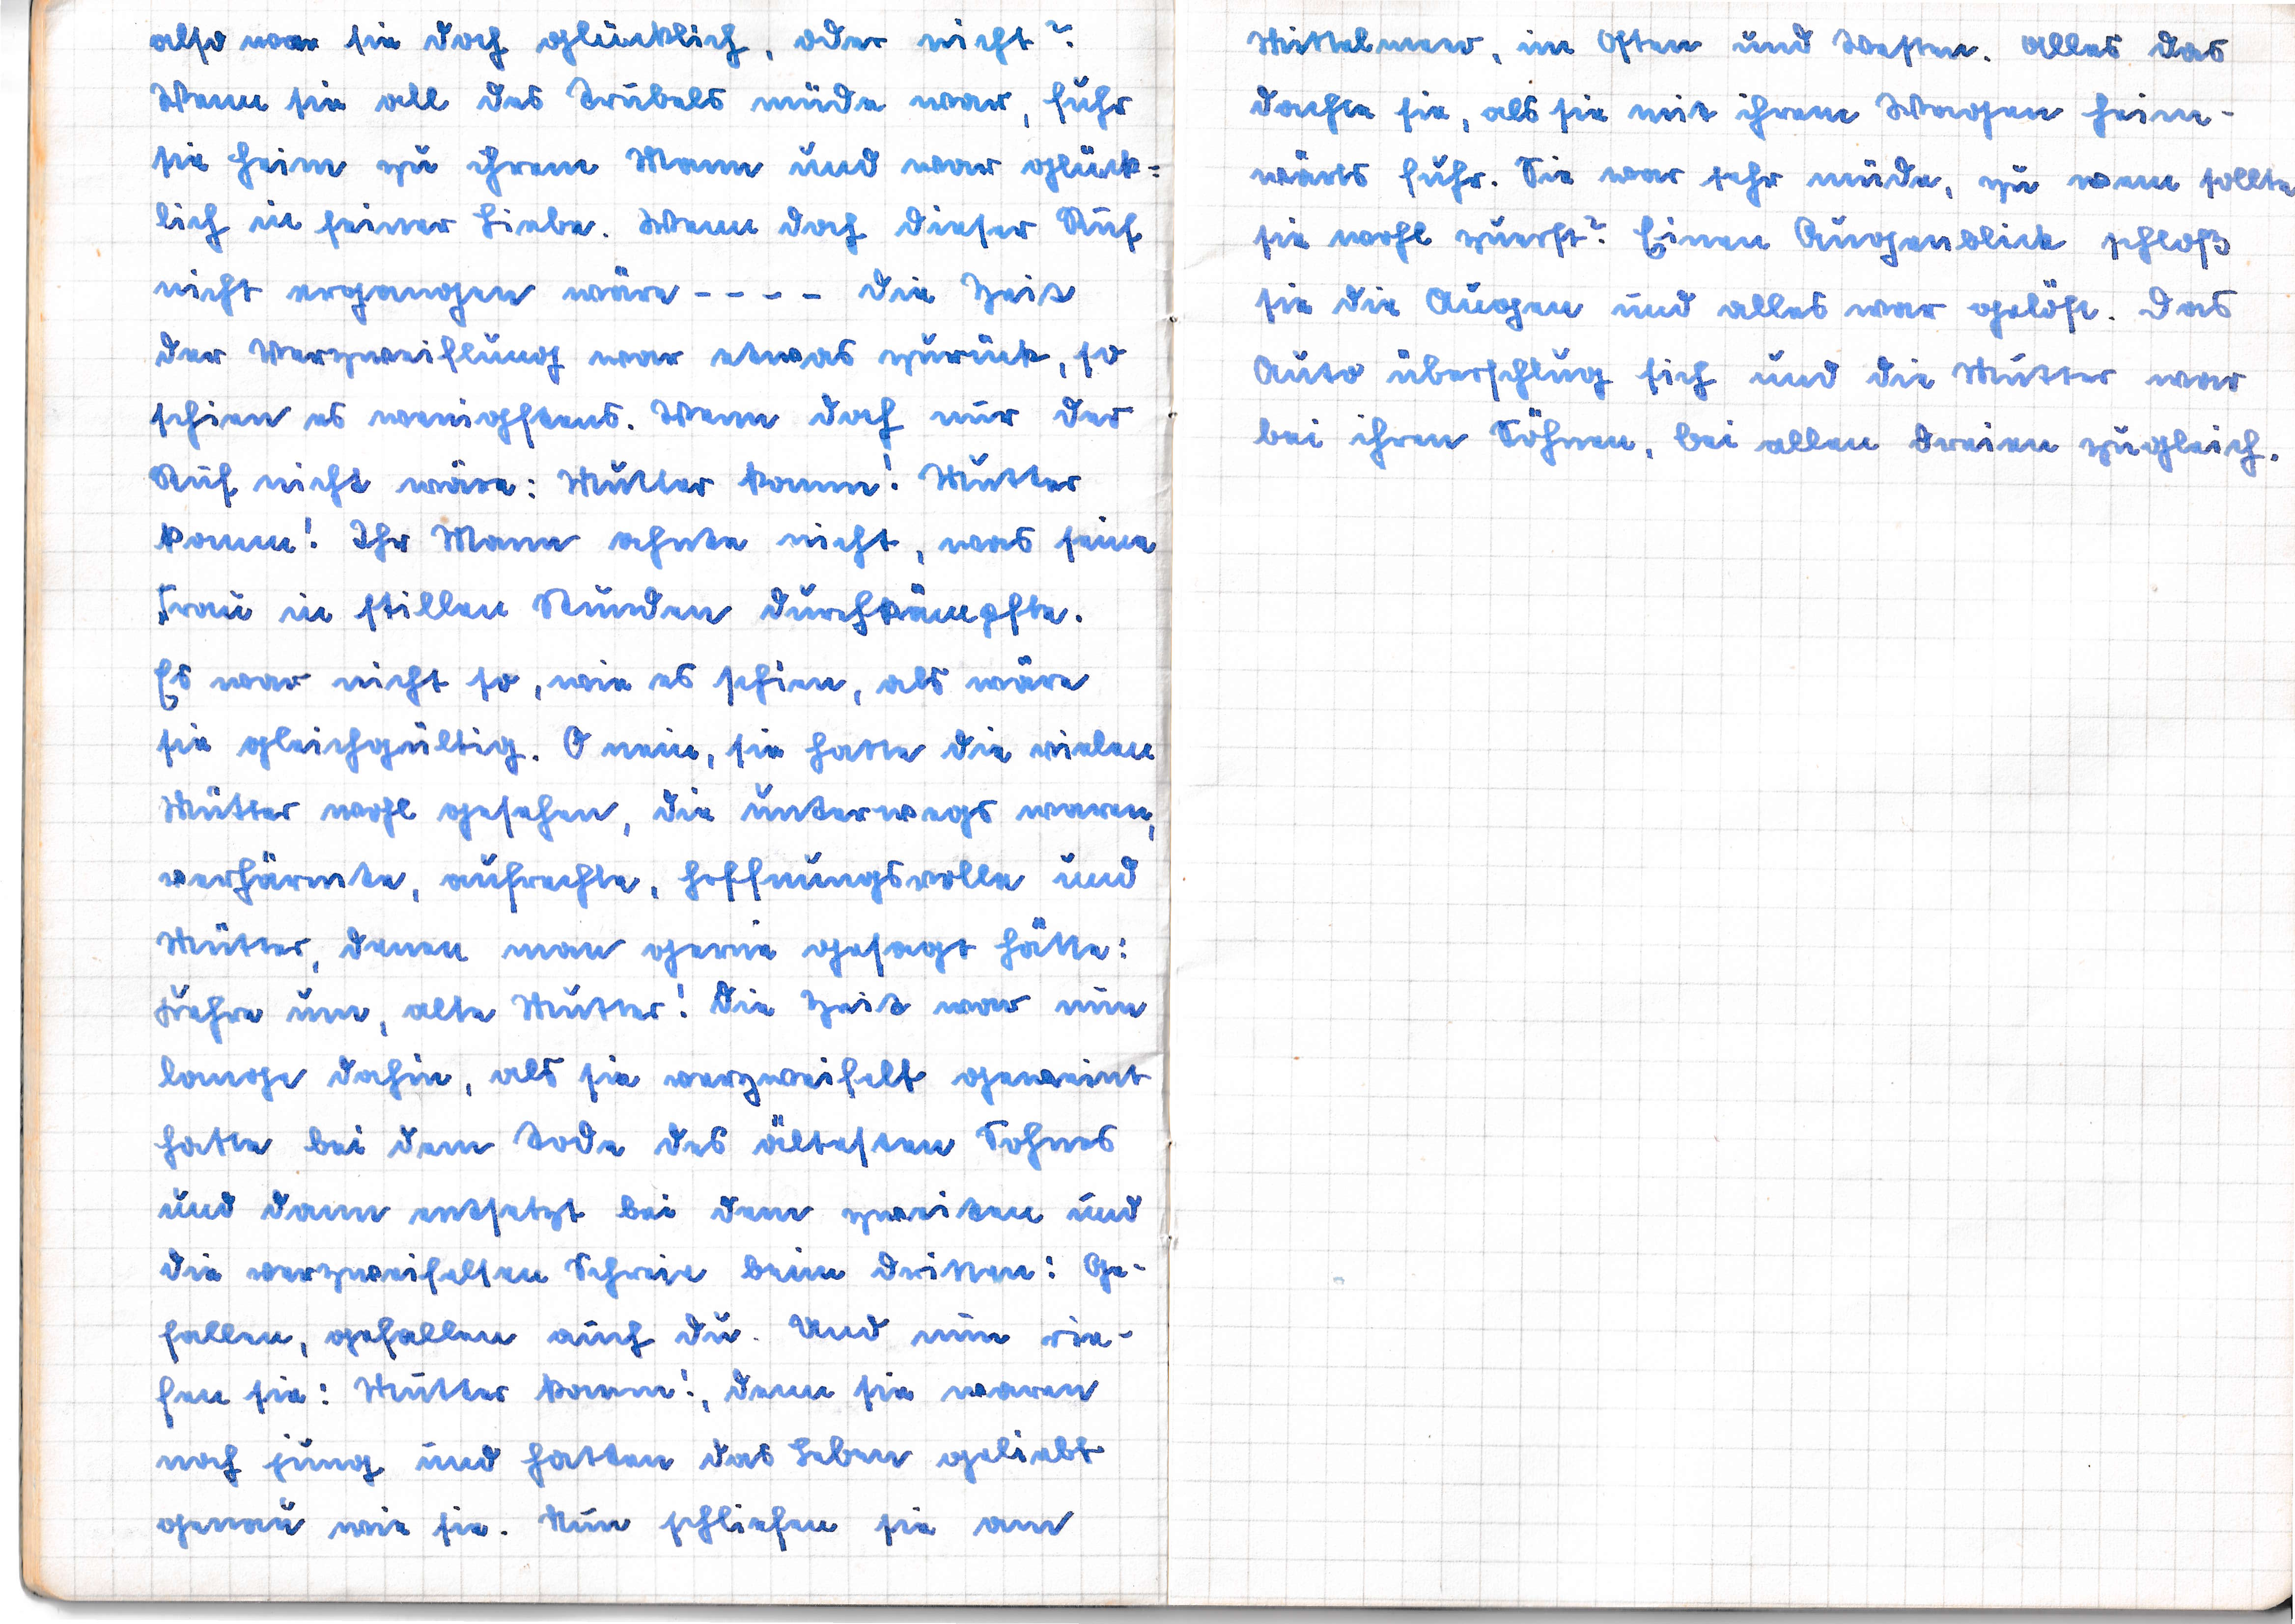 also war sie doch glücklich, oder nicht?
Wenn sie all des Trubels müde war, fuhr
sie heim zu ihrem Mann und war glück=
lich in seiner Liebe. Wenn doch dieser Ruf
nicht ergangen wäre - - - - die Zeit
der Verzweiflung war etwas zurück, so
schien es wenigstens. Wenn doch nur der
Ruf nicht wäre: Mutter komm! Mutter
komm! Ihr Mann ahnte nicht, was seine
Frau in stillen Stunden durchkämpfte.
Es war nicht so, wie es schien, als wäre
sie gleichgültig. O nein, sie hatte die vielen
Mütter wohl gesehen, die unterwegs waren,
verhärmte, aufrechte, hoffnungsvolle und
Mütter, denen man gerne gesagt hätte:
Kehre um, alte Mutter! Die Zeit war nun
lange dahin, als sie verzweifelt geweint
hatte bei dem Tode des ältesten Sohnes
und dann entsetzt bei dem zweiten und
die verzweifelten Schreie beim dritten: Ge-
fallen, gefallen auch du. Und nun rie-
fen sie: Mutter komm!, denn sie waren
noch jung und hatten das Leben geliebt
genau wie sie. Nun schliefen sie am
Mittelmeer, im Osten und Westen. Alles das
dachte sie, als sie mit ihrem Wagen heim-
wärts fuhr. Sie war sehr müde, zu wem sollte
sie wohl zuerst? Einen Augenblick schloß
sie die Augen und alles war gelöst. Das
Auto überschlug sich und die Mutter war
bei ihren Söhnen, bei allen dreien zugleich.